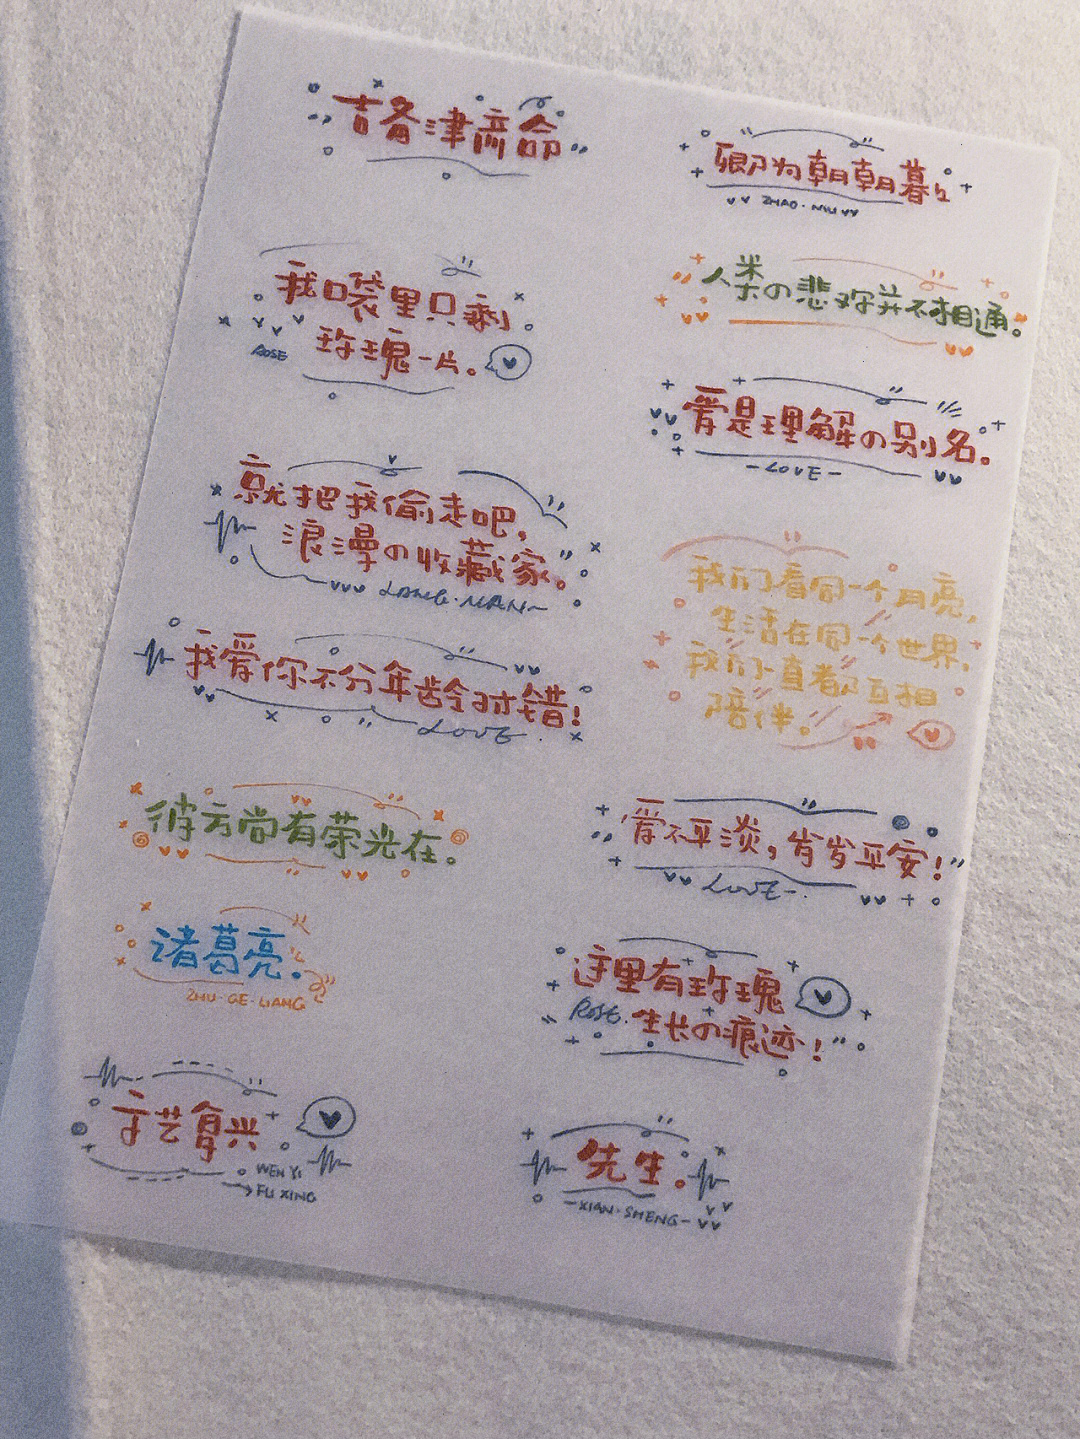 吉备津彦命
我口袋里只剩
玫瑰一片。
ROSE
就把我偷走吧,
浪漫の收藏家。
LANG·MAN~
我爱你不分年龄对错!
LOVE.
彼方尚有荣光在。
诸葛亮.
ZHU·GE·LIANG
文艺复兴
WEN YI
FU XING
卿为朝朝暮々
ZHAO·MU
人类の悲欢并不相通。
爱是理解の别名。
-LOVE-
我们看同一个月亮,
生活在同一个世界,
我们一直都互相
陪伴。
爱不平淡,岁岁平安!
LOVE-.
这里有玫瑰
ROSE.生长の痕迹!
先生。
-XIAN·SHENG-